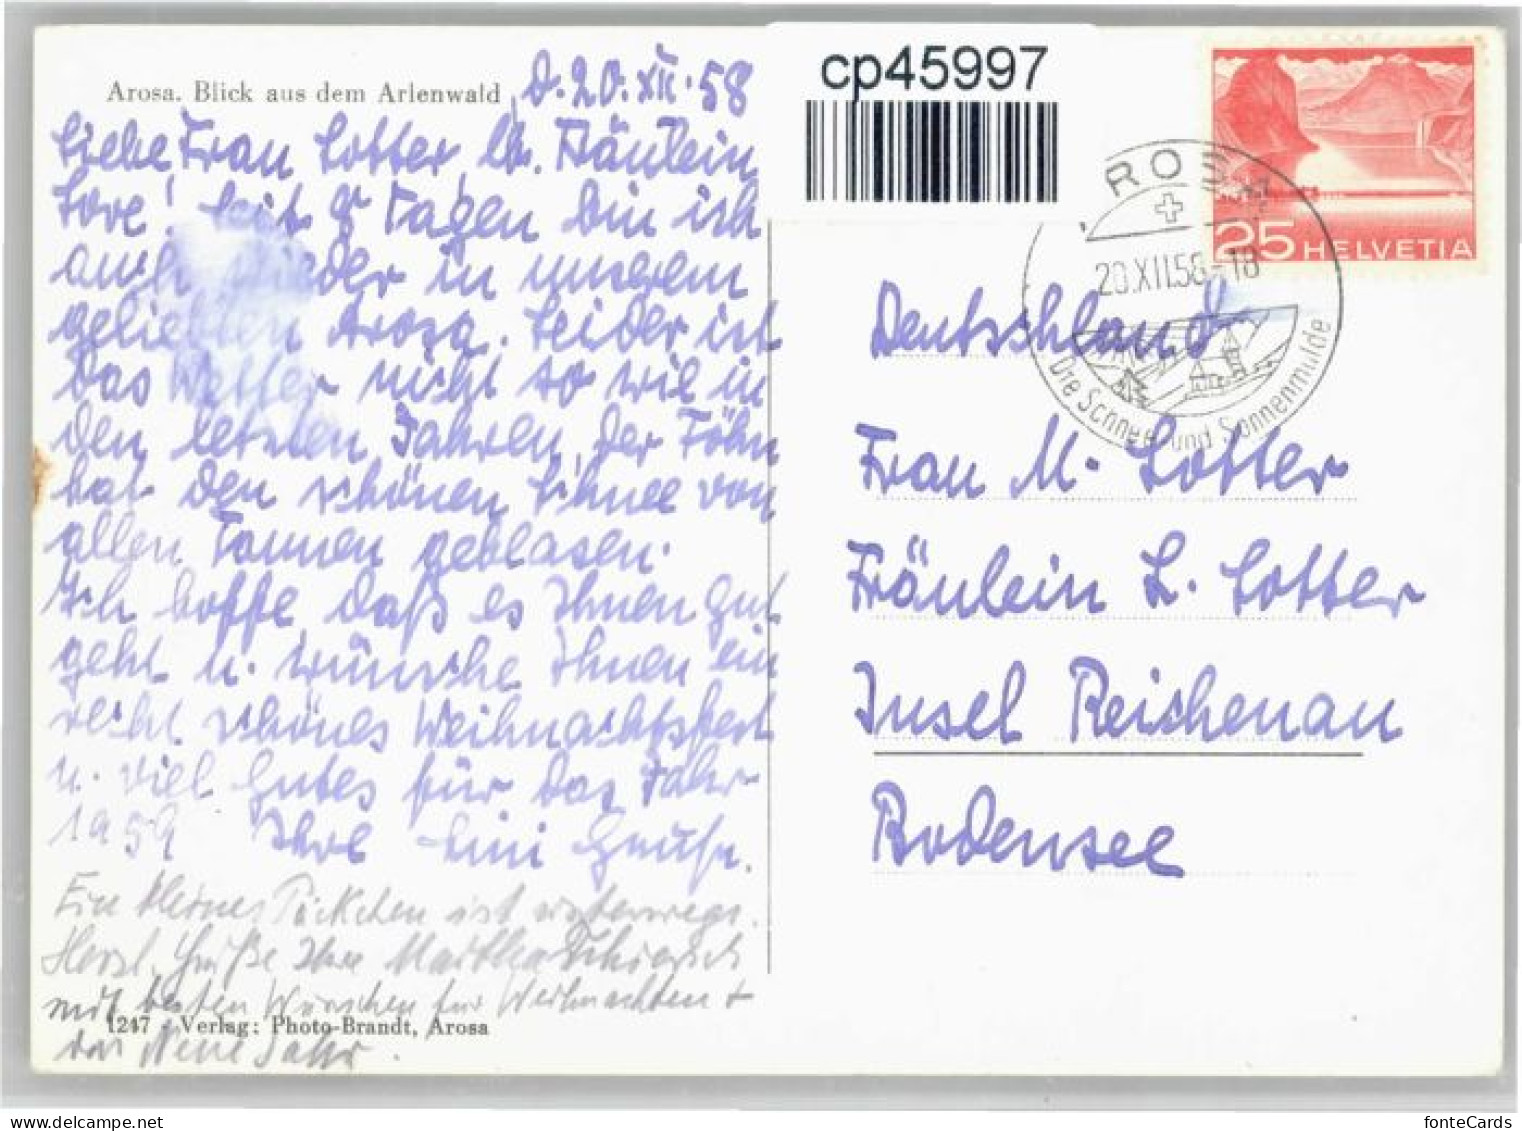 cp45997
Arosa. Blick aus dem Arlenwald d. 20. XII. 58
Liebe Frau Lotter, lb. Fräulein
Lore! Seit 8 Tagen bin ich
auch wieder in unserem
geliebten Arosa. Leider ist
das Wetter nicht so wie in
den letzten Jahren, der Föhn
hat den schönen Schnee von
allen Tannen geblasen.
Ich hoffe, daß es Ihnen gut
geht u. wünsche Ihnen ein
recht schönes Weihnachtsfest
u. viel Gutes für das Jahr
1959 Ihre
Ein kleines Päckchen ist unterwegs.
Herzl. Grüße Ihre Martha
mit besten Wünschen für Weihnachten +
das Neue Jahr.
1247 - Verlag: Photo-Brandt, Arosa
25 HELVETIA
AROSA
20.XII.58-18
Die Schnee und Sonnenmulde
Deutschland
Frau M. Lotter
Fräulein L. Lotter
Insel Reichenau
Bodensee
fonteCards